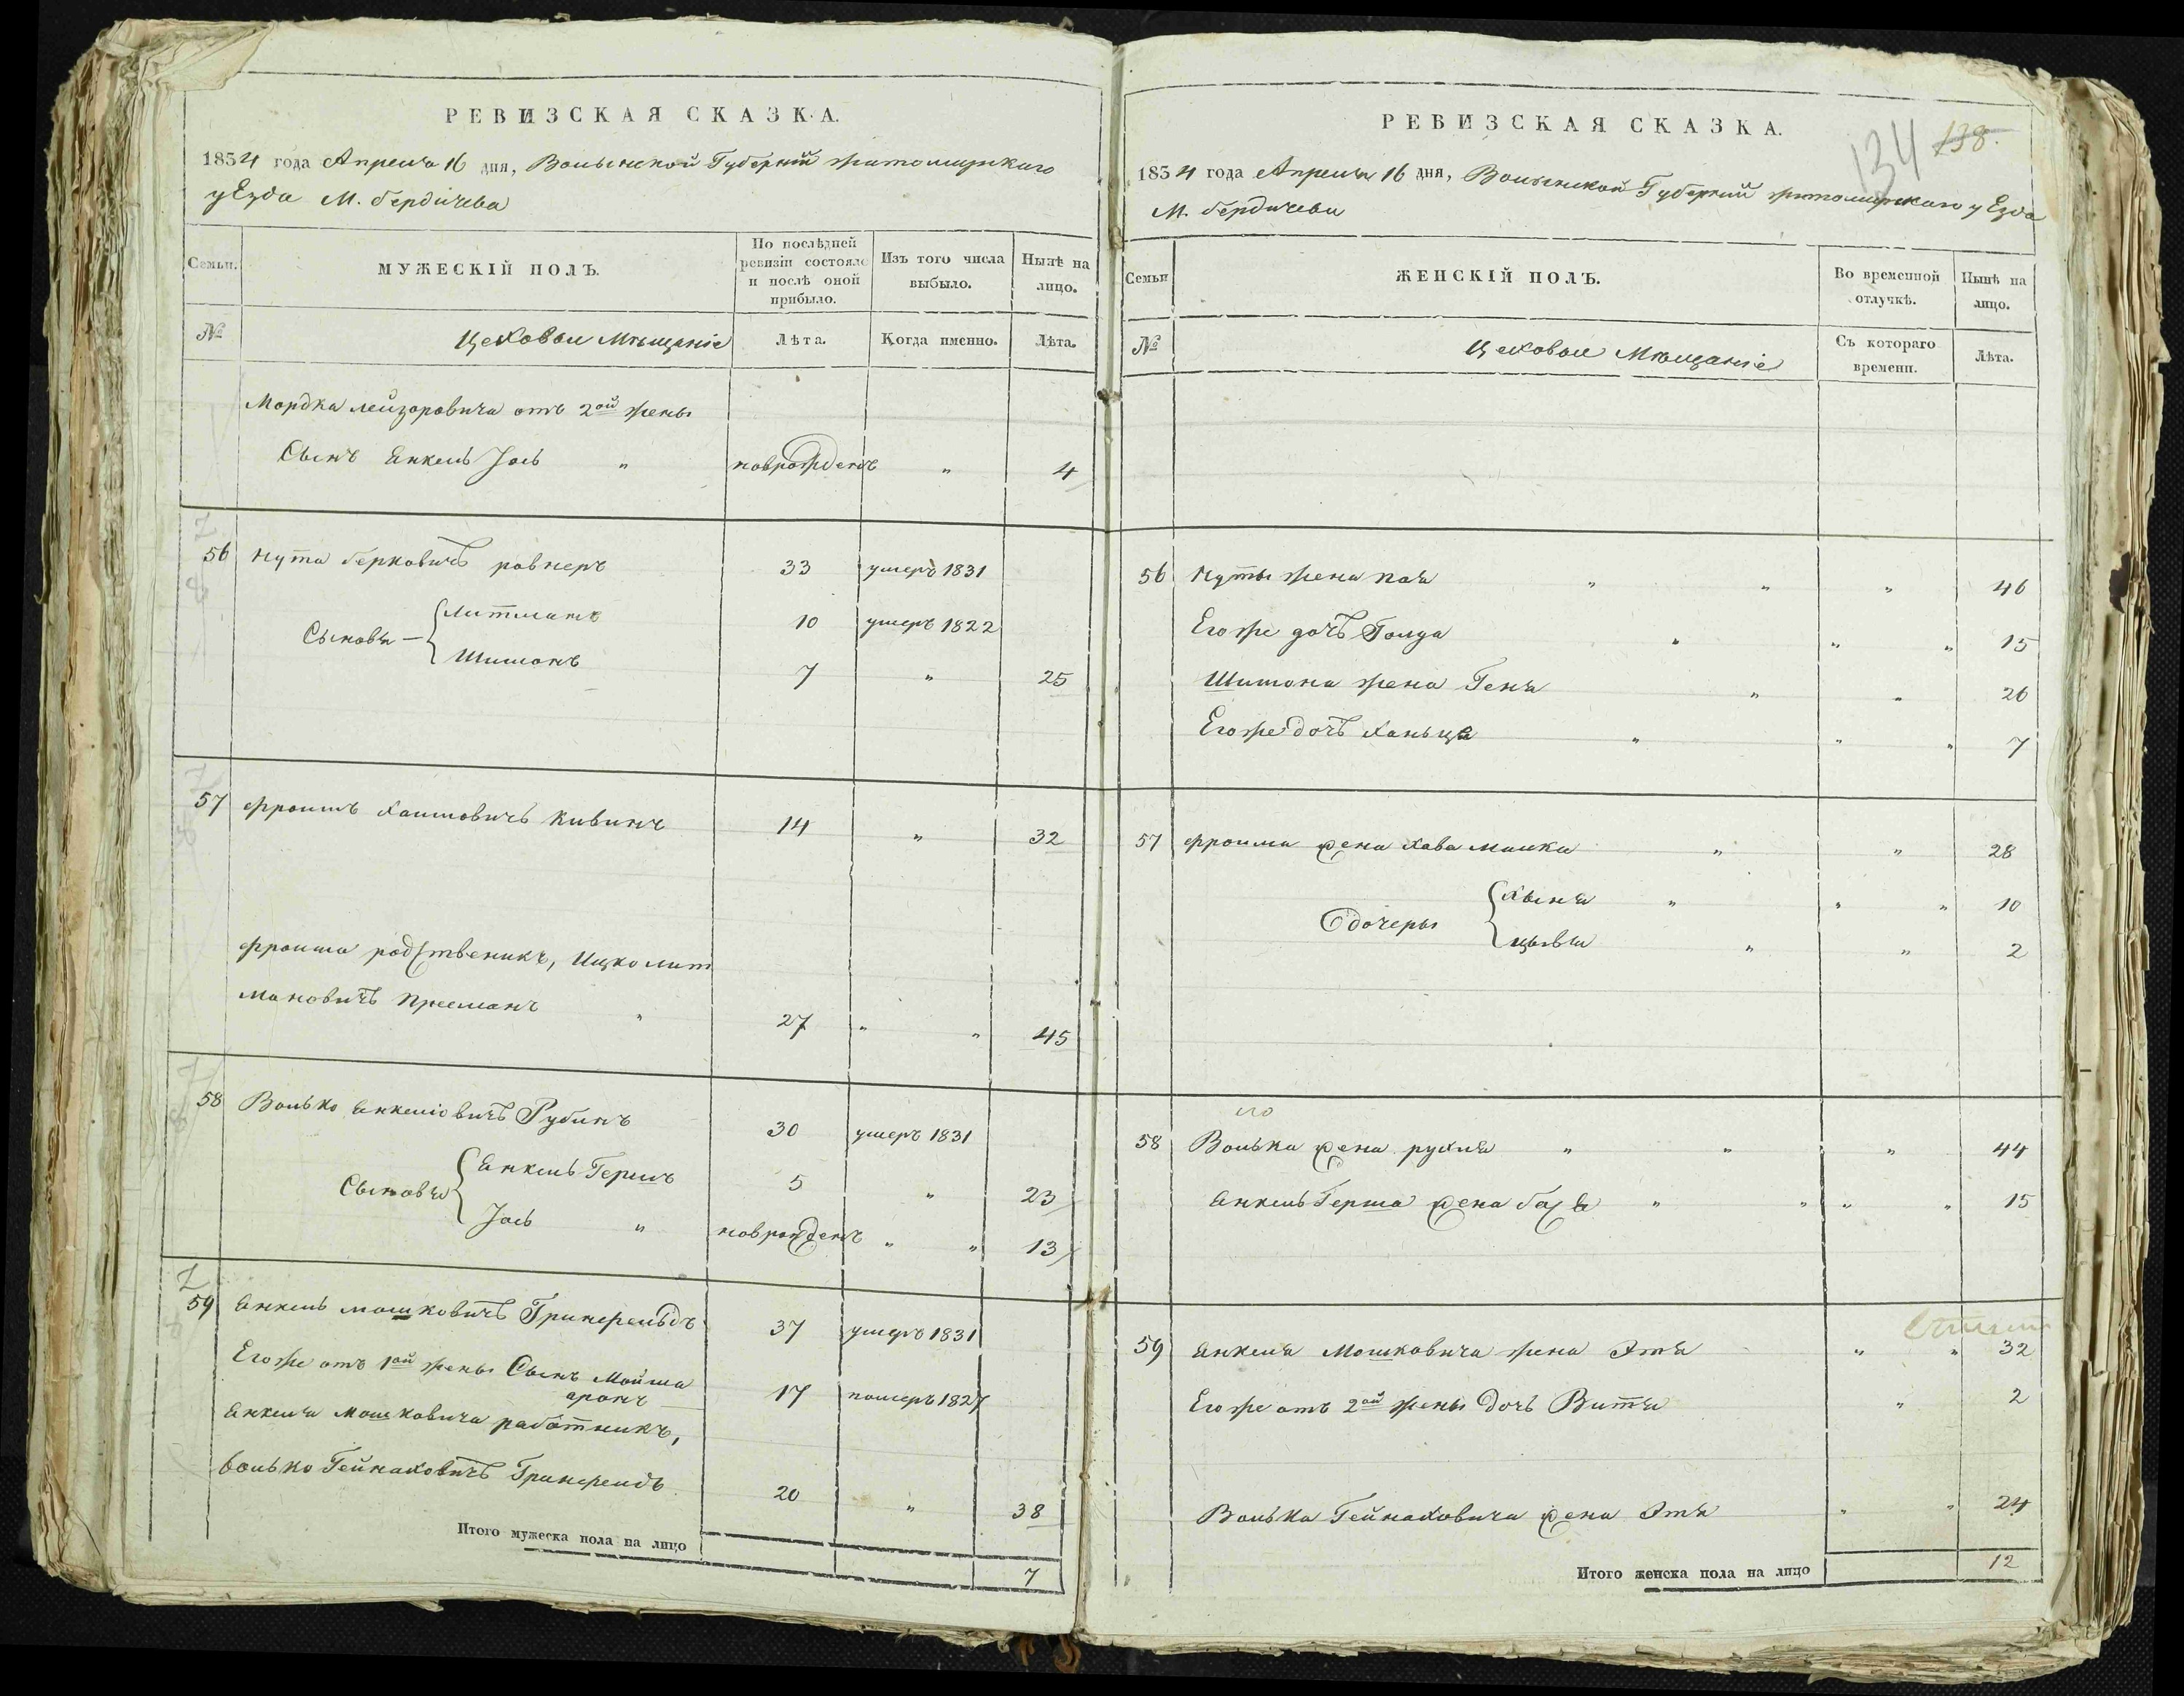 РЕВИЗСКАЯ СКАЗКА.
1854 года Апреля 16 дня, Волынской Губернии житомирскаго
уЕзда М. бердичева
Семьи.
МУЖЕСКІЙ ПОЛЪ.
По послѣдней ревизіи состояло и послѣ оной прибыло.
Изъ того числа выбыло.
Нынѣ на лицо.
№
Цеховыи Мѣщаніе
Лѣта.
Когда именно.
Лѣта.
Мордка лейзоровича отъ 2ой жены
Сынъ Янкель Іось " новрожденъ " 4
56 Нута берковичъ ровнеръ 33 умеръ 1831
Сыновья { Литманъ 10 умеръ 1822
Шимонъ 7 " 25
57 Фроимъ Хаимовичъ Кивинъ 14 " 32
Фроима родственикъ, Ицко лит
мановичъ Прессманъ " 27 " " 45
58 Волько Янкеліовичъ Рубинъ 30 умеръ 1831
Сыновья { Янкель Гершъ 5 " 23
Іось " новрожденъ " " 13
59 Янкель мошковичъ Гринфельдъ 37 умеръ 1831
Егоже отъ 1ой жены Сынъ Мойша
аронъ 17 померъ 1827
Янкеля Мошковича работникъ,
волько Гейнаховичъ Гринфельдъ 20 " 38
Итого мужеска пола на лицо 7
РЕВИЗСКАЯ СКАЗКА.
134 138.
1854 года Апреля 16 дня, Волынской Губернии житомирскаго уЕзда
М. бердичева
Семьи
ЖЕНСКІЙ ПОЛЪ.
Во временной отлучкѣ.
Нынѣ на лицо.
№
Цеховыи Мѣщаніе
Съ котораго времени.
Лѣта.
56 Нуты жена Пая " " " 46
Егоже дочь Голда " " " 15
Шимона жена Геня " " 26
Егоже дочь Ханьця " " " 7
57 Фроима жена Хава малка " " 28
дочеры { Хыня " " " 10
цывья " " 2
58 Волька жена рухля " " " " 44
Янкель Герша жена бася " " " " 15
59 Янкеля Мошковича жена Этя " " 32
Егоже отъ 2ой жены дочь Витя " 2
Волька Гейнаховича жена Этя " " 24
Итого женска пола на лицо 12